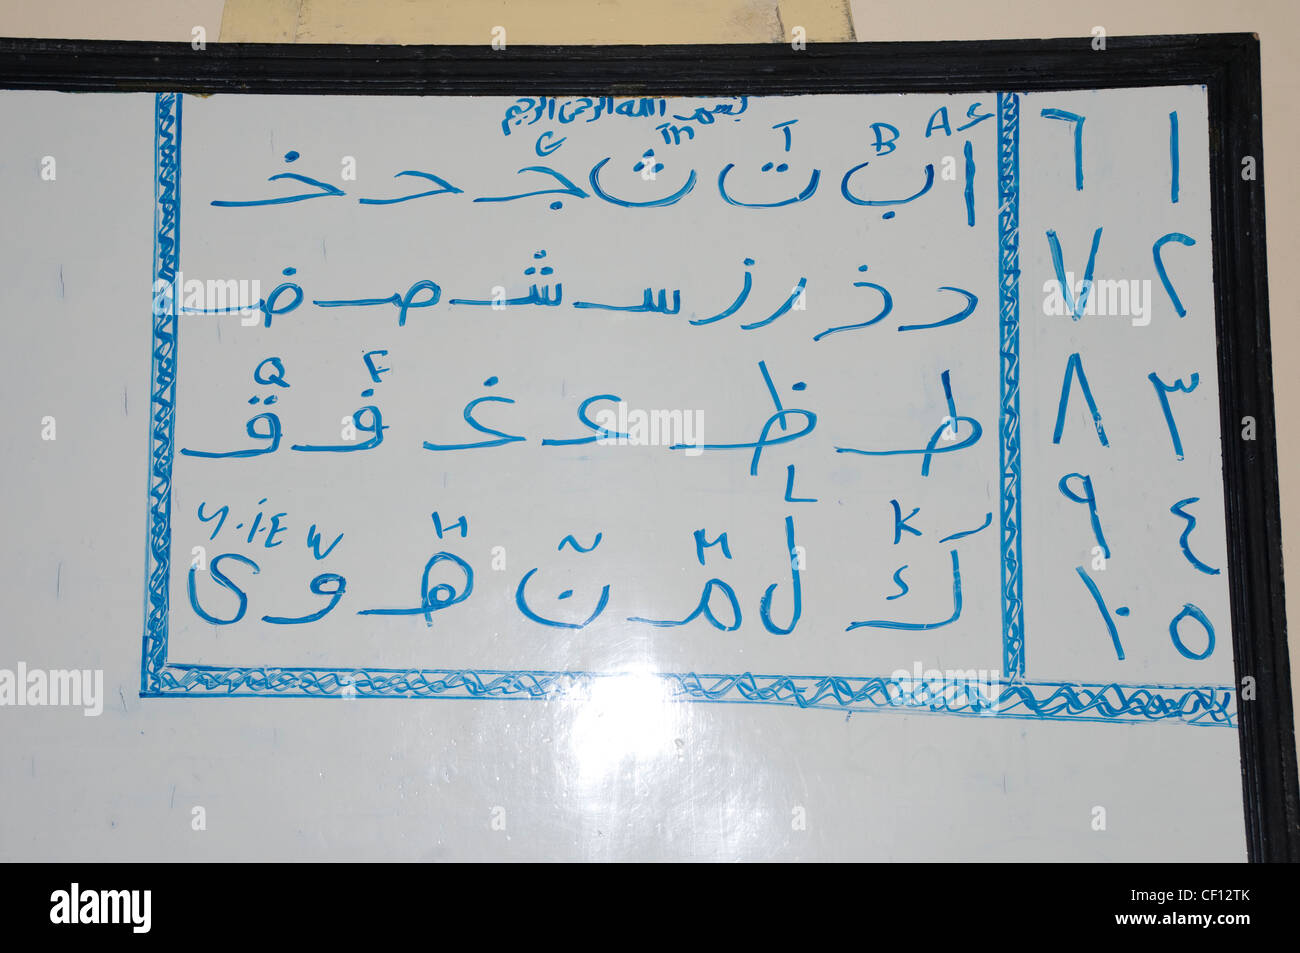 بسم الله الرحمن الرحيم
A ء B T Th G
ا ب ت ث ج ح خ
د ذ ر ز س ش ص ض
F Q
ط ظ ع غ ف ق
K L M N H W Y.iE
ك ل م ن ه و ى
١ ٦
٢ ٧
٣ ٨
٤ ٩
٥ ١٠
alamy
Image ID: CF12TK
www.alamy.com